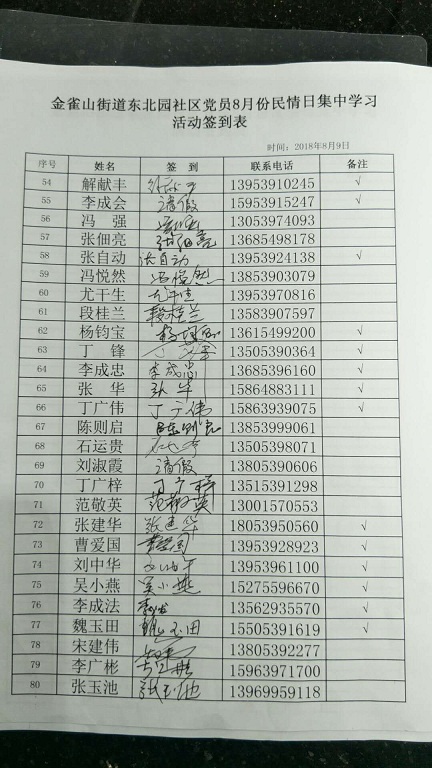 金雀山街道东北园社区党员8月份民情日集中学习
活动签到表
时间：2018年8月9日
序号 姓名 签 到 联系电话 备注
54 解献丰 13953910245 √
55 李成会 请假 15953915247 √
56 冯 强 冯强 13053974093
57 张佃亮 张佃亮 13685498178
58 张自动 张自动 13953924138 √
59 冯悦然 冯悦然 13853903079
60 尤干生 尤干生 13953970816
61 段桂兰 段桂兰 13583907597
62 杨钧宝 13615499200 √
63 丁 锋 丁 13505390364 √
64 李成忠 李成忠 13685396160 √
65 张 华 张华 15864883111 √
66 丁广伟 丁广伟 15863939075 √
67 陈则启 陈则启 13853999061
68 石运贵 13505398071
69 刘淑霞 请假 13805390606
70 丁广梓 丁广梓 13515391298
71 范敬英 范敬英 13001570553
72 张建华 张建华 18053950560 √
73 曹爱国 曹爱国 13953928923 √
74 刘中华 13953961100 √
75 吴小燕 吴小燕 15275596670 √
76 李成法 13562935570 √
77 魏玉田 魏玉田 15505391619 √
78 宋建伟 13805392277
79 李广彬 15963971700
80 张玉池 张玉池 13969959118